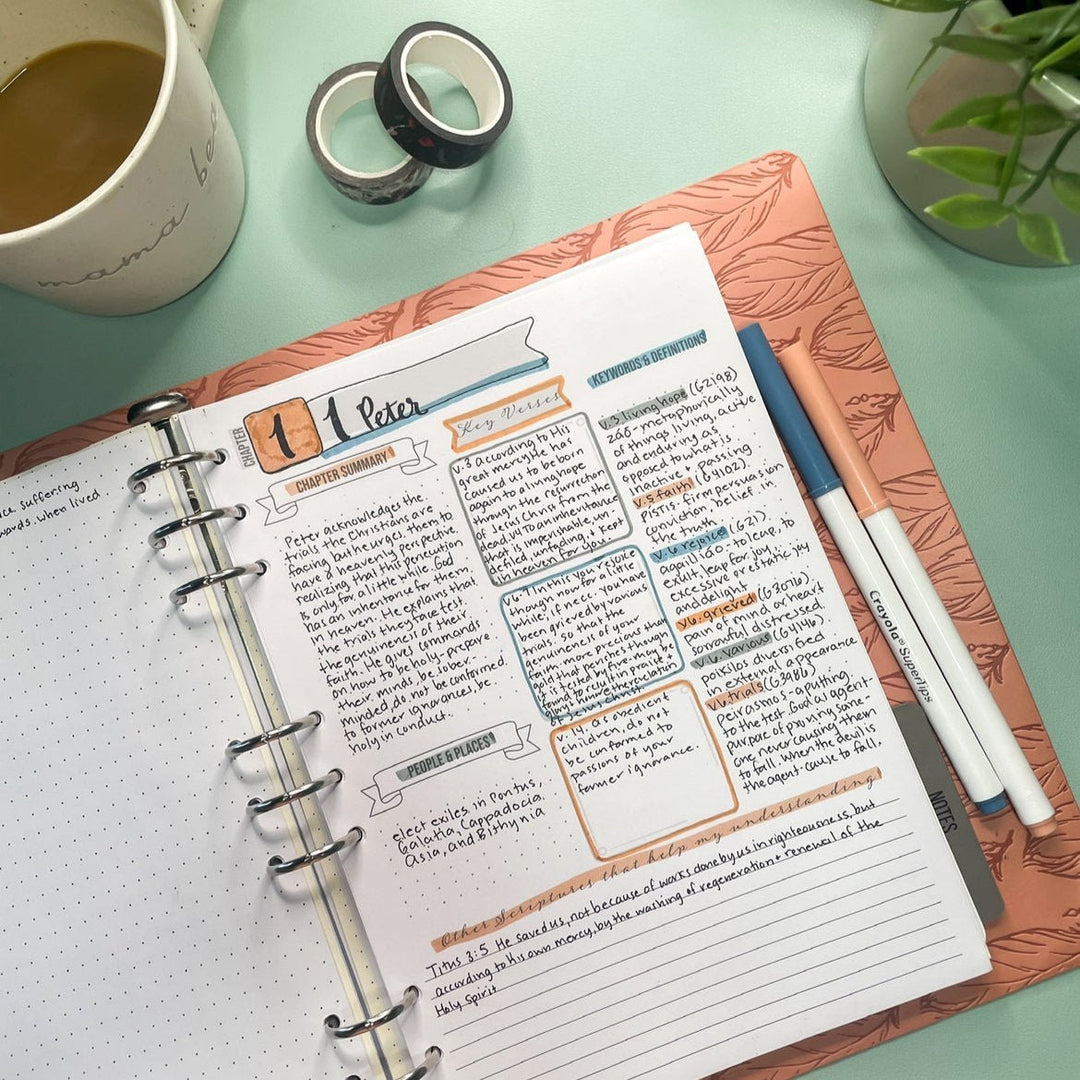 mama be
ce suffering
words. when lived
CHAPTER
1
1 Peter
CHAPTER SUMMARY
Peter acknowledges the
trials the Christians are
facing but he urges them to
have a heavenly perspective
realizing that this persecution
is only for a little while. God
has an inheritence for them
in heaven. He explains that
the trials they face test
the genuineness of their
faith. He gives commands
on how to be holy-prepare
their minds, be sober-
minded, do not be conformed
to former ignorances, be
holy in conduct.
PEOPLE & PLACES
elect exiles in Pontus,
Galatia, Cappadocia.
Asia, and Bithynia
Key Verses
v.3 according to His
great mercy He has
caused us to be born
again to a living hope
through the resurrection
of Jesus Christ from the
dead. v.4 To an inheritance
that is imperishable, un-
defiled, unfading, + kept
in heaven for you.
v.6-7 In this you rejoice
though now for a little
while, if necc. you have
been grieved by various
trials, so that the
genuineness of your
faith, more precious than
gold that perishes though
it is tested by fire. may be
found to result in praise +
glory + honor + the revelation
of Jesus Christ.
v. 14. as obedient
children, do not
be conformed to
passions of your
former ignorance.
KEYWORDS & DEFINITIONS
v.3 living hope (G2198)
záō - metaphorically
of things living, active
and enduring as
opposed to what is
inactive + passing
v.5 faith (G4102).
Pistis-firm persuasion
conviction, belief in
the truth
v.6 rejoice (G21).
agallíáō-to leap, to
exult, leap for joy.
excessive or estatic joy
and delight
v6: grieved (G3076)
pain of mind or heart
sorrowful, distressed.
v.6. various (G4164)
poikilos diversified
in external appearance
v6.trials (G3986)
peirasmos-a putting
to the test. God as agent-
purpose of proving some-
one, never causing them
to fall. when the devil is
the agent-cause to fall.
Other Scriptures that help my understanding
Titus 3:5 He saved us, not because of works done by us in righteousness, but
according to his own mercy, by the washing of regeneration + renewal of the
Holy Spirit
NOTES
Crayola® SuperTips